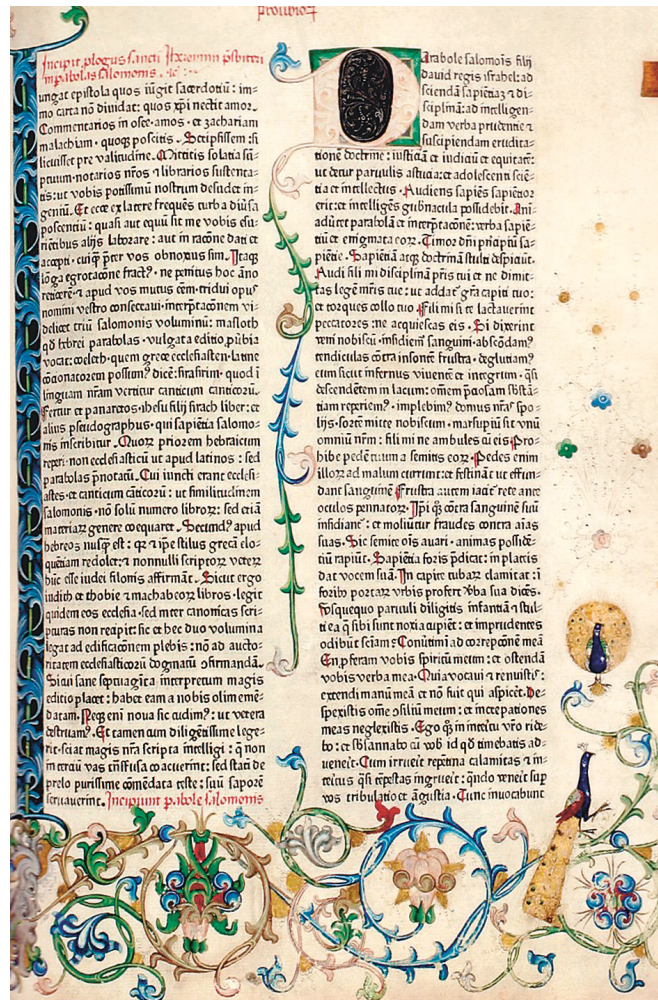 prouerbior
Incipit plogus sancti Iheronimi pṡbiteri
in parabolas salomonis
iungat epistola quos iūgit sacerdotiū: im-
mo carta nō diuidat: quos xp̄i nectit amor.
Commentarios in osee · amos · et zachariam
malachiam · quoqꝫ poscitis . Scripsissem: si
licuisset pre valitudine. Mittitis solatia sū-
ptuum · notarios nr̄os et librarios sustenta-
tis: ut vobis potissimū nostrum desudet in-
geniū. Et ecce ex latere frequēs turba diūsa
poscentiū: quasi aut equū sit me vobis esu-
rientibus alijs laborare: aut in racōne dati et
accepti · cuiqꝫ p̄ter vos obnoxius sim. Itaqꝫ
lōga egrotacōne fract⁹ · ne penitus hoc āno
reticerē et apud vos mutus eēm · tridui opus
nomini vestro consecraui · interptacōnem vi-
delicet triū salomonis voluminū: masloth
qd̄ hebrei parabolas · vulgata editio puerbia
vocat: coeleth · quem grece ecclesiasten · latine
cōcionatorem possum⁹ dicē: sirasirim · quod ī
linguam nr̄am vertitur canticum canticorū.
Fertur et panaretos · ihesu filij sirach liber: et
alius pseudographus · qui sapientia salomo-
nis inscribitur . Quorꝫ priorem hebraicum
reperi · non ecclesiasticū ut apud latinos : sed
parabolas p̄notatū. Cui iuncti erant ecclesi-
astes · et canticum cāticorū: ut similitudinem
salomonis · nō solū numero librorꝫ: sed etiā
materiarꝫ genere coequaret. Secund⁹ apud
hebreos nusqꝫ est: qꝫ et ipe stilus grecā elo-
quētiam redolet: et nonnulli scriptorꝫ veterꝫ
hūc esse iudei filonis affirmāt. Sicut ergo
iudith et thobie et machabeorꝫ libros · legit
quidem eos ecclesia · sed inter canonicas scri-
pturas non recipit: sic et hec duo volumina
legat ad edificacōnem plebis: nō ad aucto-
ritatem ecclesiasticorū dogmatū ꝯfirmandā.
Si cui sane septuagīta interpretum magis
editio placet: habet eam a nobis olim emē-
datam. Neqꝫ enī noua sic cudim⁹: ut vetera
destruam⁹. Et tamen cum diligētissime lege-
rit · sciat magis nr̄a scripta intelligi: q̄ non
in terciū vas trāsfusa coacuerint: sed stati de
prelo purissime cōmēdata teste: suū saporē
seruauerint. Incipiunt pabole salomonis
Parabole salomōis filij
dauid regis israhel: ad
sciendā sapiētiāꝫ et di-
sciplinā: ad intelligen-
dam verba prudentie et
suscipiendam erudita-
tionē doctrine: iusticiā et iudiciū et equitatē:
ut detur paruulis astucia: et adolescenti sciē-
tia et intellectus . Audiens sapiēs sapientior
erit: et intelligēs gubnacula possidebit. Ani-
aduertet parabolā et interptacōnē: verba sapiē-
tiū et enigmata eorꝫ. Timor dn̄i principiū sa-
piētie. Sapiētiā atqꝫ doctrinā stulti despiciūt.
Audi fili mi disciplinā pr̄is tui et ne dimit-
tas legē mr̄is tue: ut addat᷑ gr̄a capiti tuo:
et torques collo tuo Fili mi si te lactauerint
peccatores: ne acquiescas eis . Si dixerint
veni nobiscū · insidiem᷑ sanguini · abscōdam⁹
tendiculas cōtra insontē frustra · deglutiam⁹
eum sicut infernus viuentē et integrum · q̄si
descendētem in lacum: omēm p̄ciosam sbstā-
tiam reperiem⁹ · implebim⁹ domus nr̄as spo-
lijs. sortē mitte nobiscum · marsupiū sit vnū
omniū nr̄m : fili mi ne ambules cū eis Pro-
hibe pedē tuum a semitis eorꝫ . Pedes enim
illorꝫ ad malum currunt: et festināt ut effun-
dant sanguinē Frustra autem iacit᷑ rete ante
oculos pennatorꝫ. Ip̄i qꝫ cōtra sanguinē suū
insidiant᷑: et moliūtur fraudes contra aīas
suas. Sic semite oīs auari · animas possidē-
tiū rapiūt. Sapiētia foris p̄dicat: in plateis
dat vocem suā. In capite turbarꝫ clamitat: ī
foribꝫ portarꝫ vrbis profert v̄ba sua dicēs.
Vsquequo paruuli diligitis infantiā et stul-
ti ea q̄ sibi sunt noxia cupiēt: et imprudentes
odibūt sciam Conūtimī ad correpcōnē meā
En p̄feram vobis spiritū meum: et ostendā
vobis verba mea. Quia vocaui et renuistis:
extendi manū meā et nō fuit qui aspicēt. De-
spexistis om̄e ꝯsiliū meum: et increpationes
meas neglexistis. Ego qꝫ in interitu vr̄o ride-
bo: et sbsannabo cū vob id qd̄ timebatis ad-
uenerit. Cum irruerit repētina calamitas et in-
teritus q̄si tēpestas ingruerit: q̄ndo venerit sup
vos tribulatio et āgustia. Tunc inuocabunt